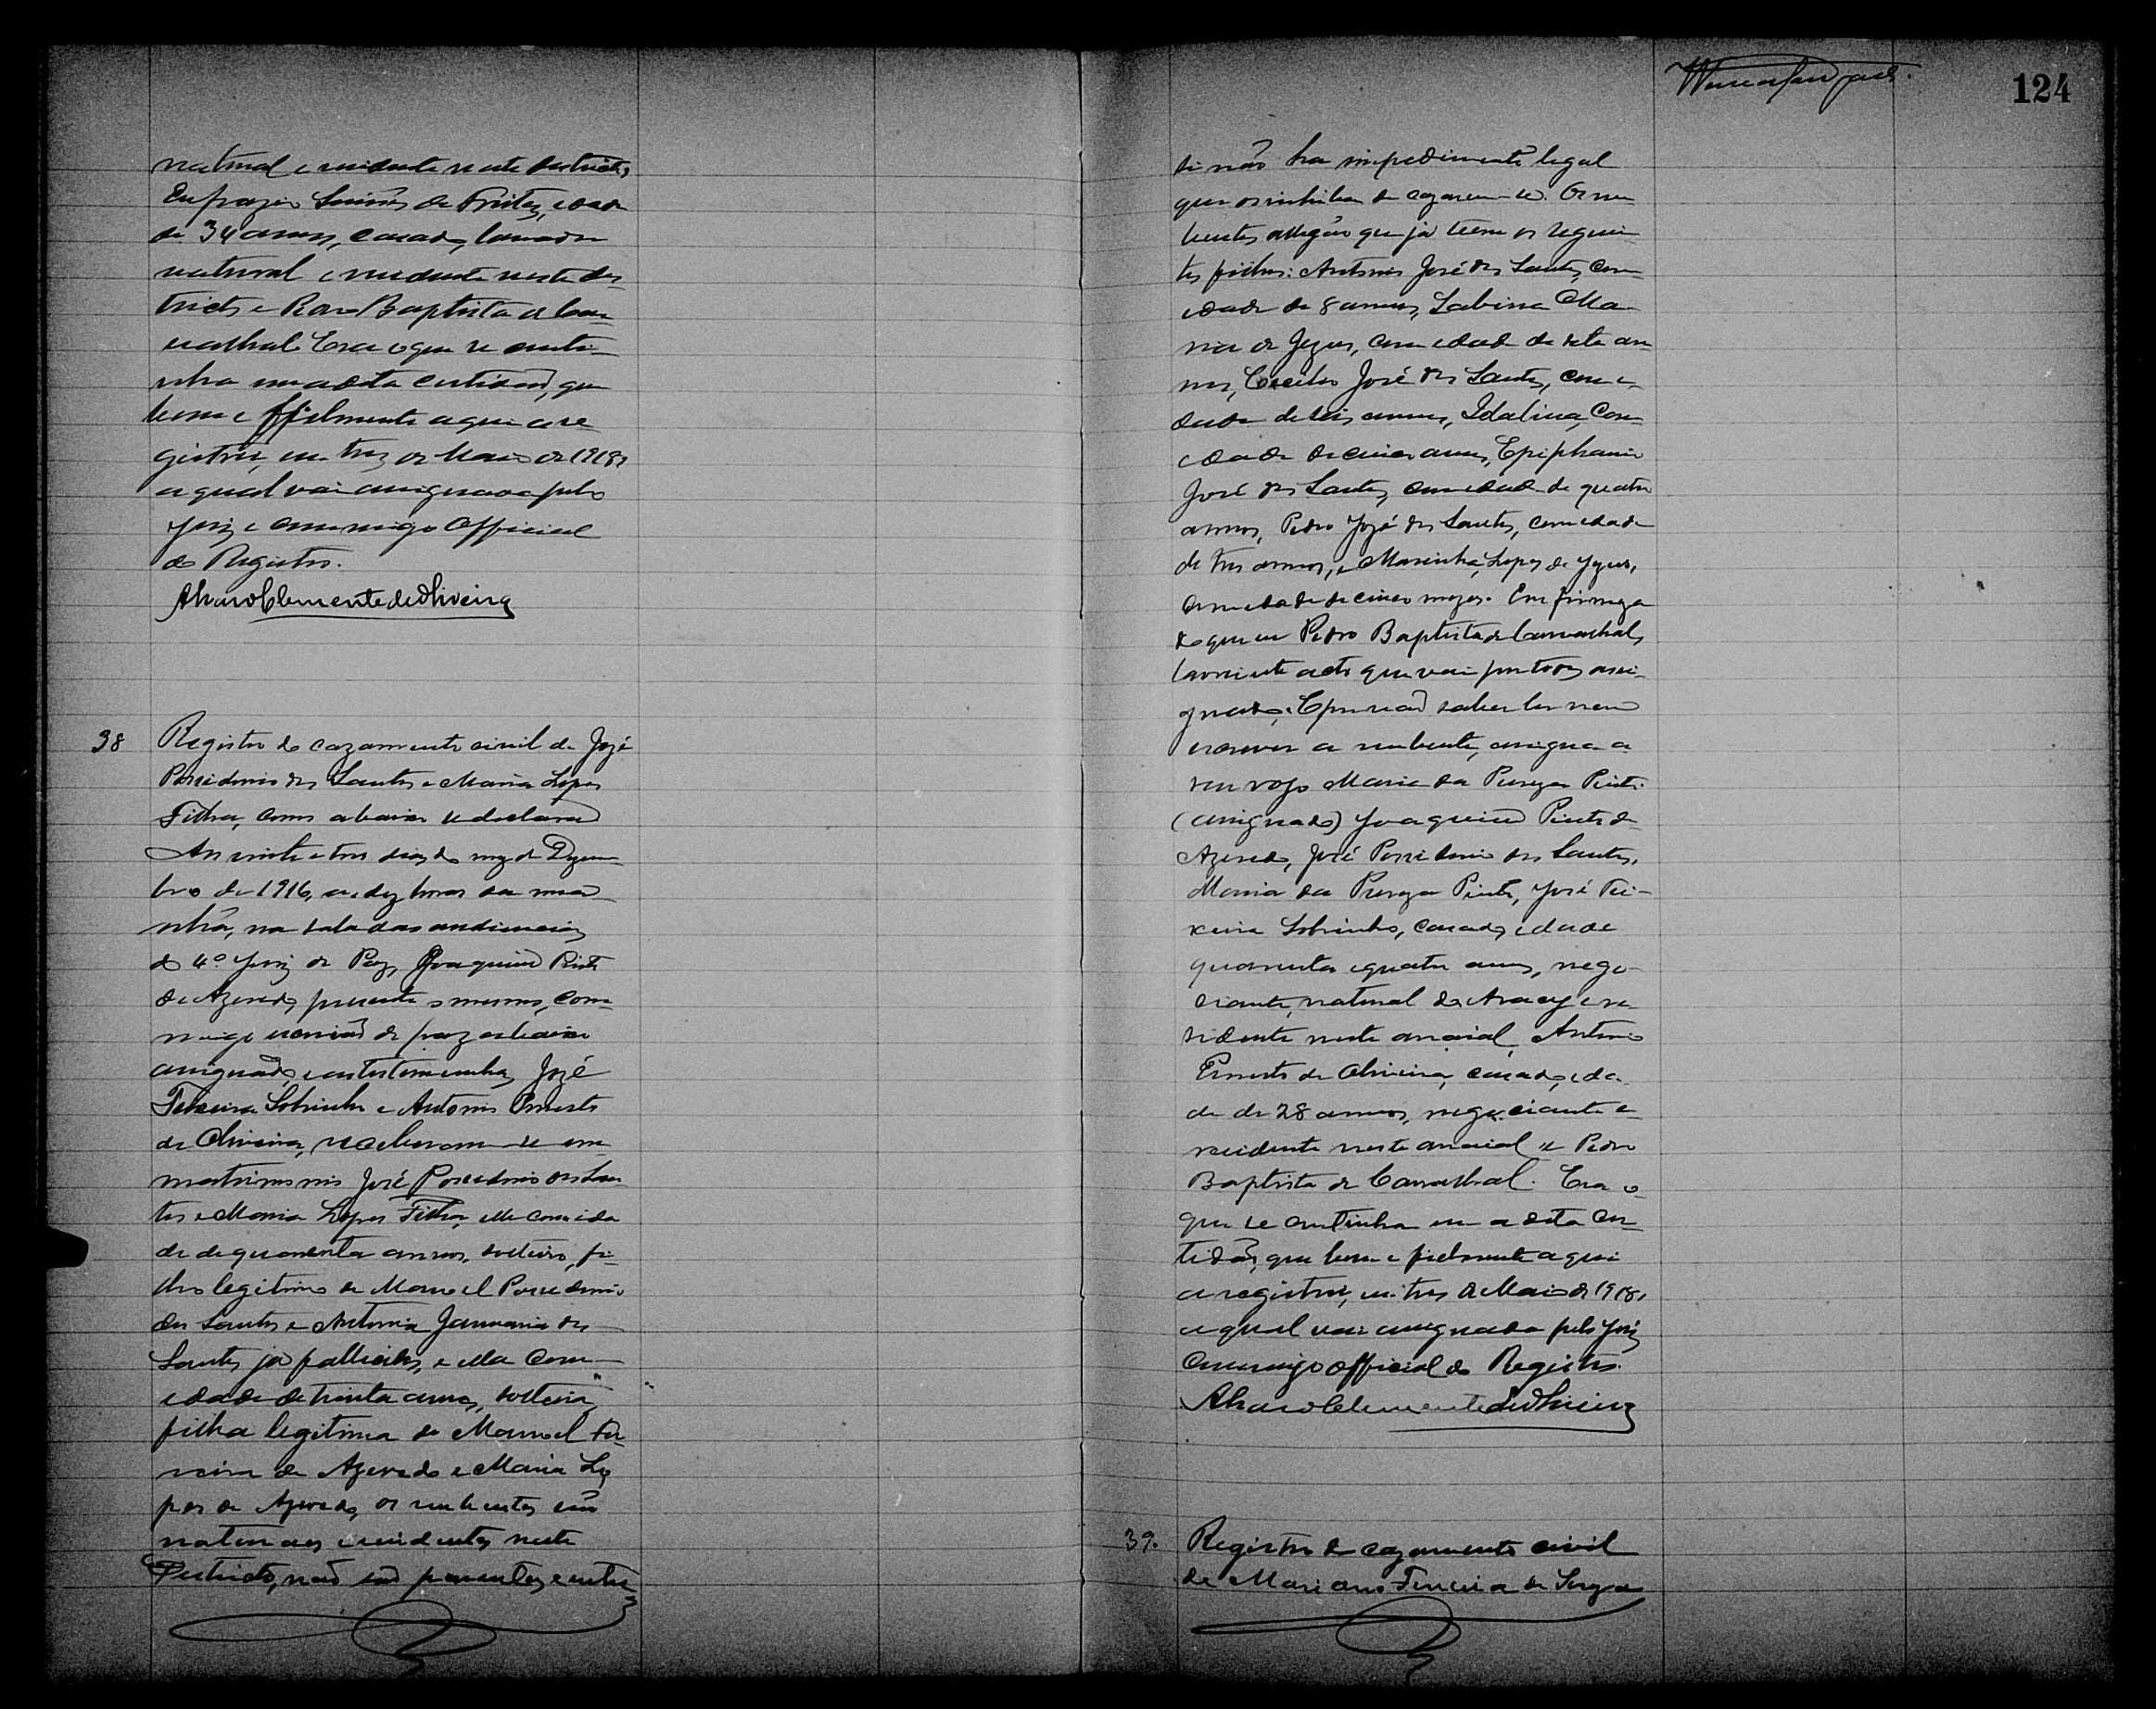 natural e residente neste districto,
Eufrazio Simões de Freitas, idade
de 34 annos, casado, lavrador
natural e residente neste dis
tricto e Baptista de Car
valhal. Era o que se conti
nha em a dita certidão, que
bem e fielmente aqui a re
gistrei, em tres de Maio de 1918,
a qual vai assignada pelo
Juiz e commigo Official
do Registro.
Alvaro Clemente de Oliveira
38 Registro do cazamento civil de José
Possidonio dos Santos e Maria Lopes
Filha, como abaixo se declara
Aos vinte e tres dias do mez de Dezem
bro de 1916, as dez horas da ma
nhã, na sala das audiencias
do 4º Juiz de Paz, Joaquim Pinto
de Azevedo, presente o mesmo, com
migo escrivão de paz abaixo
assignado, e as testemunhas José
Teixeira Sobrinho e Antonio Ernesto
de Oliveira, receberam-se em
matrimonio José Possidonio dos San
tos e Maria Lopes Filha, elle com ida
de de quarenta annos, solteiro, fi
lho legitimo de Manoel Possidonio
dos Santos e Antonia Januaria dos
Santos já fallecidos, e ella com
idade de trinta annos, solteira,
filha legitima de Manoel
de Azevedo e Maria Lo
pes de Azevedo, os nubentes são
naturaes e residentes neste
Districto, não são parentes, e entre
124
si não ha impedimento legal
que os inhiba de cazarem-se. Os nu
bentes allegão que já teem os seguin
tes filhos: Antonio José dos Santos, com
idade de 8 annos, Sabina Ma
ria de Jezus, com idade de sete an
nos, José dos Santos, com i
dade de seis annos, Idalina, com
idade de cinco annos, Epiphanio
José dos Santos, com idade de quatro
annos, Pedro José dos Santos, com idade
de tres annos, e Lopes de Jezus,
com idade de cinco mezes. Em firmeza
do que eu Pedro Baptista de Carvalhal,
lavrei este acto que vai por todos assi
gnado. E por não saber ler nem
escrever a nubente, assigna a
seu rogo Maria da Pureza Pinto.
(assignado) Joaquim Pinto de
Azevedo, José Possidonio dos Santos,
Maria da Pureza Pinto, José Tei-
xeira Sobrinho, casado, idade
quarenta e quatro annos, nego-
ciante, natural de Aracy e re
sidente neste arraial, Antonio
Ernesto de Oliveira, casado, ida
de de 28 annos, negociante e
residente neste arraial e Pedro
Baptista de Carvalhal. Era o
que se continha em a dita cer
tidão, que bem e fielmente aqui
a registrei, em tres de Maio de 1918,
a qual vai assignada pelo Juiz
commigo official do Registro.
Alvaro Clemente de Oliveira
39. Registro de cazamento civil
de Mariano Ferreira de Souza